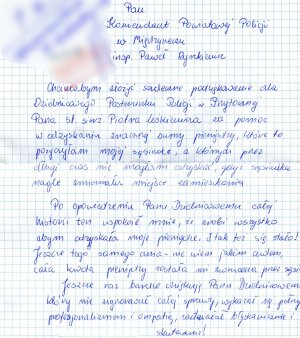 Pan
Komendant Powiatowy Policji
w Międzyrzeczu
insp. Paweł Rynkiewicz
Chciałabym złożyć serdeczne podziękowanie dla
Dzielnicowego Posterunku Policji w Przytocznej
Pana st. sierż. Piotra Leśkiewicza za pomoc
w odzyskaniu znacznej sumy pieniędzy, które to
pożyczyłam mojej sąsiadce, a których przez
długi czas nie mogłam odzyskać, gdyż sąsiadka
nagle zmieniała miejsce zamieszkania.
Po opowiedzeniu Panu Dzielnicowemu całej
historii ten uspokoił mnie, że zrobi wszystko
abym odzyskała moje pieniądze. I tak też się stało!
Jeszcze tego samego dnia - nie wiem jakim cudem,
cała kwota pieniędzy została mi zwrócona przez
Jeszcze raz bardzo dziękuję Panu Dzielnicowemu
który nie zignorował całej sprawy, wykazał się pełnym
profesjonalizmem i empatią, zadziałał błyskawicznie i
skutecznie!